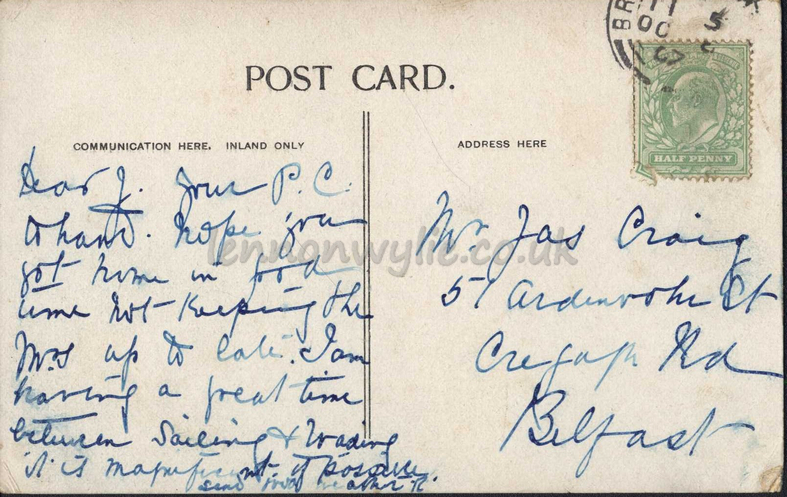 POST CARD.
COMMUNICATION HERE. INLAND ONLY
ADDRESS HERE
HALF PENNY
Dear J. your P.C.
to hand. hope you
got home in good
time not keeping the
Mrs up to late. I am
having a great time
between Sailing & Wading
it is magnificent. if possible
send
Mr. Jas Craig
51 Ardenvohr St
Cregagh Rd
Belfast
lennonwylie.co.uk